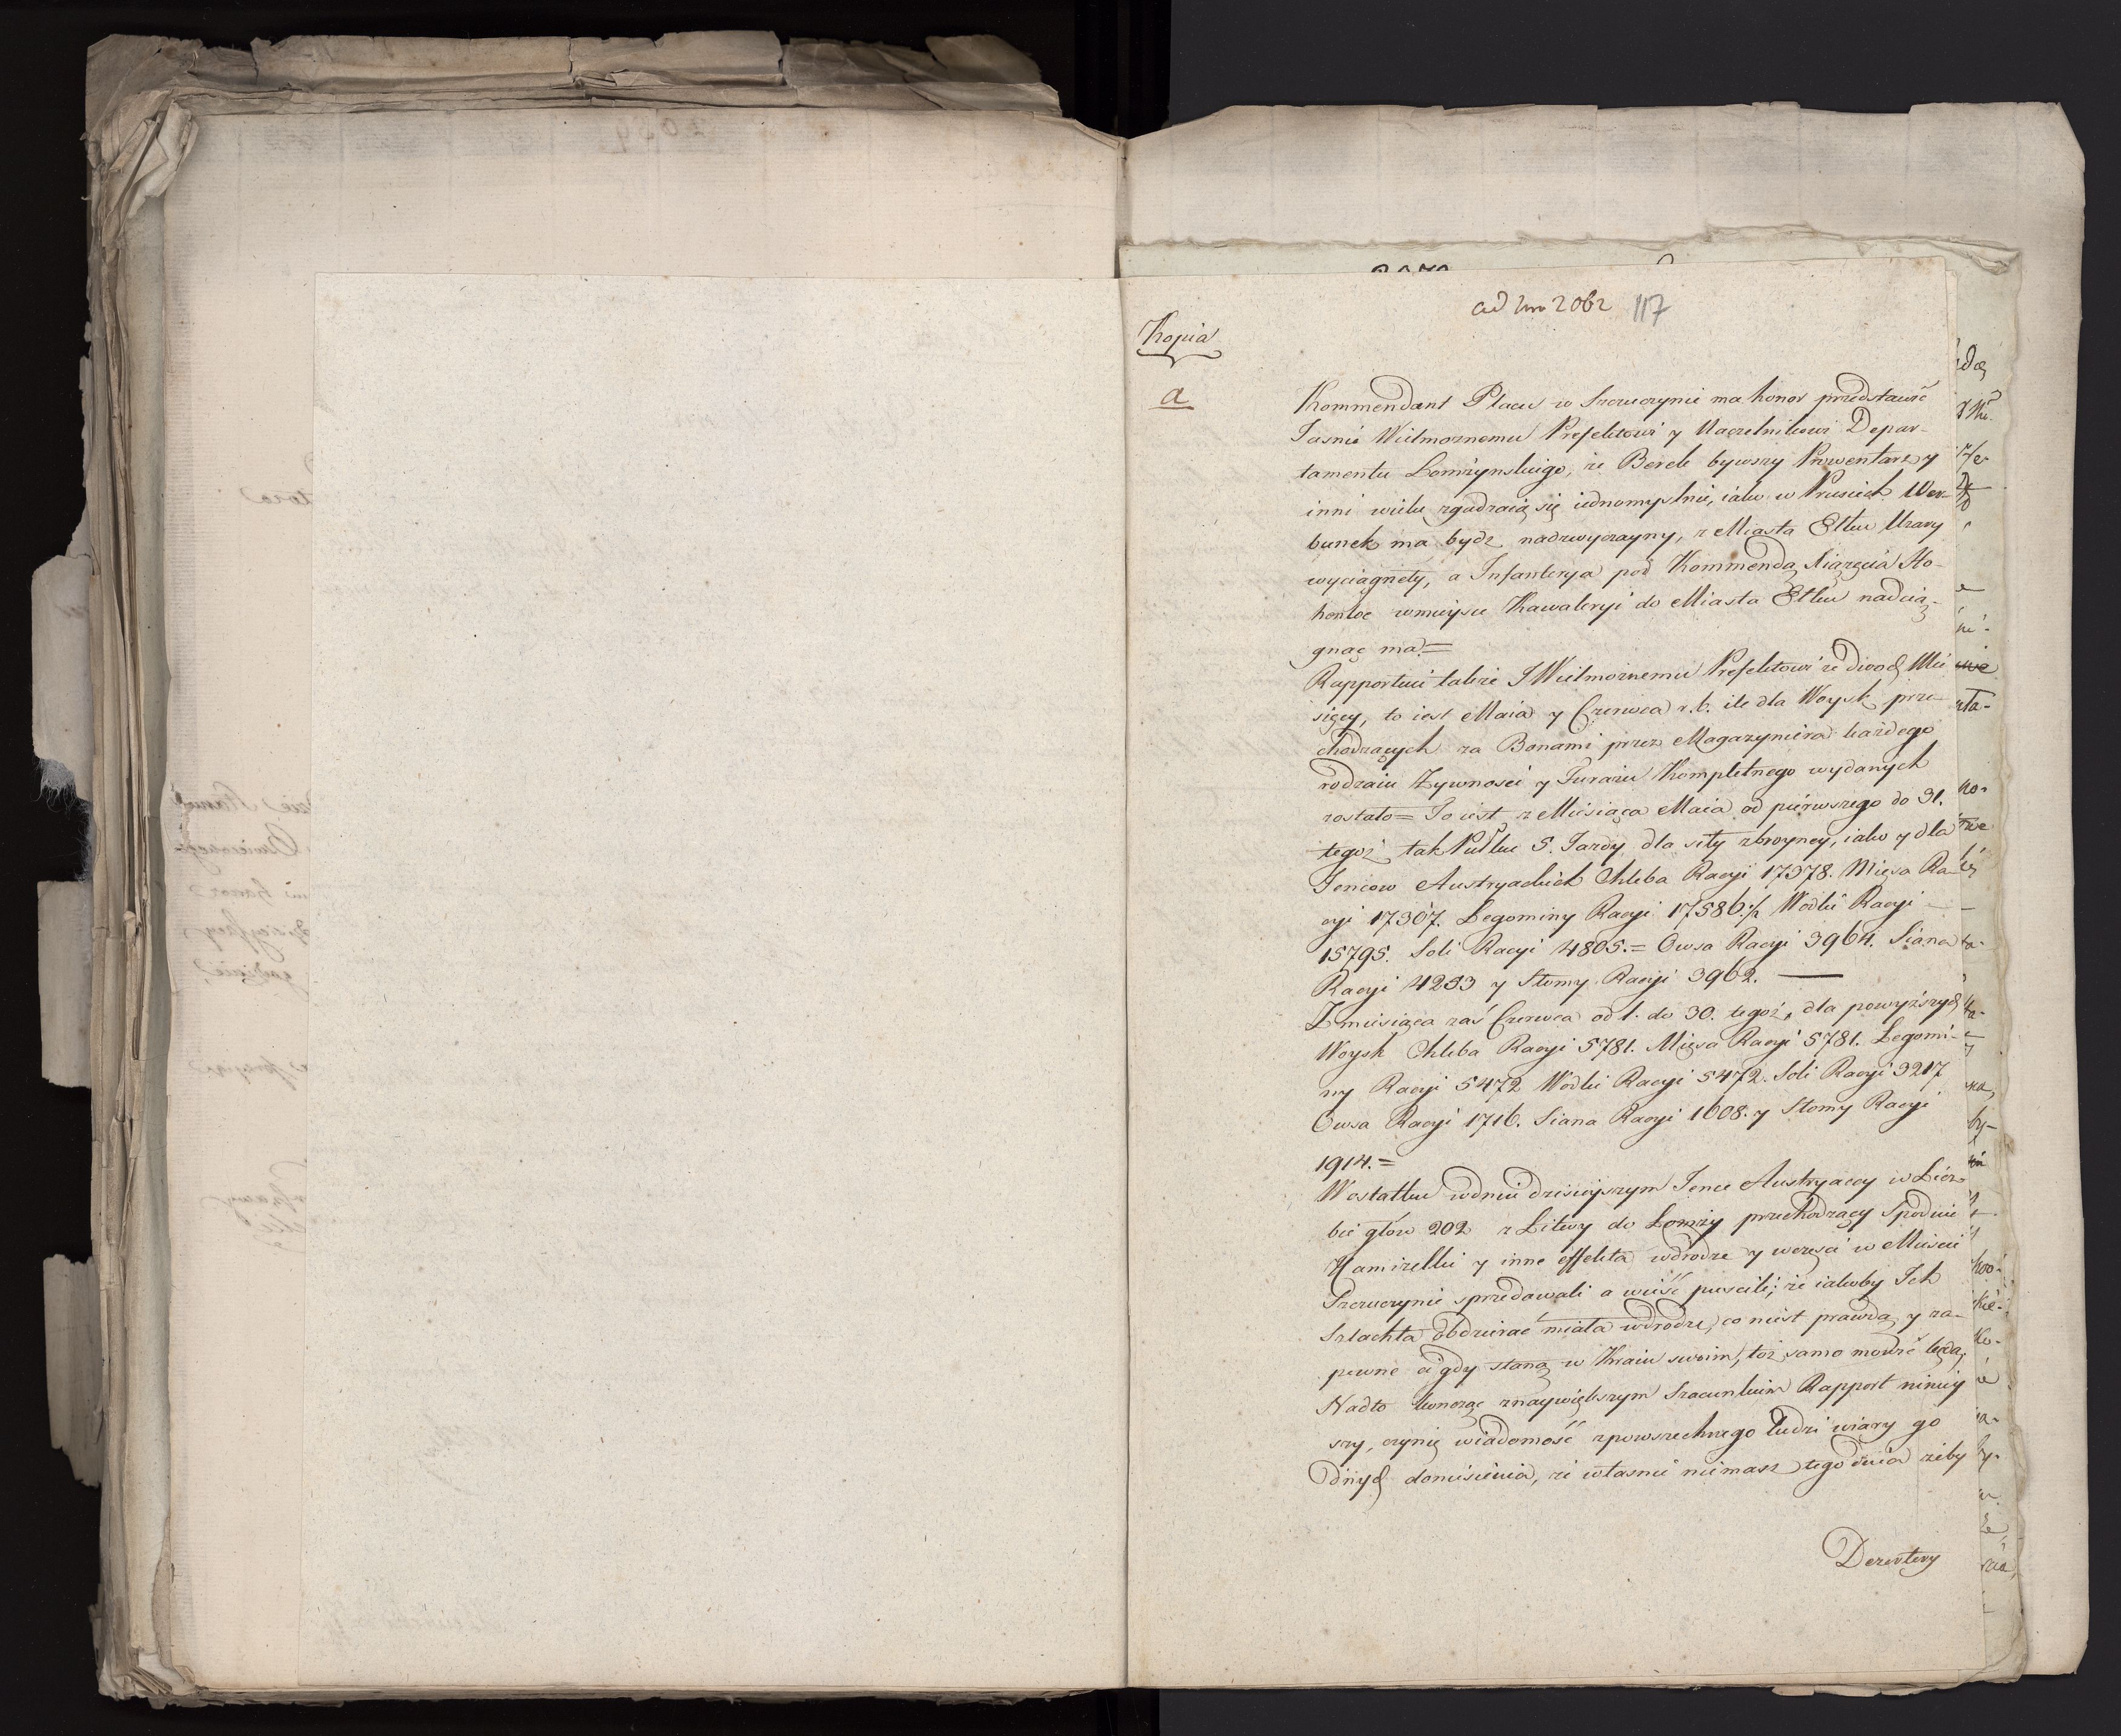 ad Nro 2062 117
Kopia
a
Kommendant Placu w Szczuczynie ma honor przedstawić
Jasnie Wielmoznemu Prefektowi y Naczelnikowi Depar-
tamentu Łomżynskiego, że Berek bywszy Prowentarz y
inni wielu zgadzaią się iednomyslnie, iako w Prusiech Wer-
bunek ma bydz nadzwyczayny, z Miasta Ełku Uzary
wyciągnęły, a Infanterya pod Kommendą Xiązęcia Ho-
henloe wmieysce Kawaleryi do Miasta Ełku nadcią-
gnąc ma.=
Rapportuie także JWielmożnemu Prefektowi że dwoch Mie
sięcy, to iest Maia y Czerwca r. b. ile dla Woysk prze-
chodzących za Bonami przez Magazyniera każdego
rodzaiu Żywnosci y Furażu Kompletnego wydanych
zostało= To iest z Miesiąca Maia od pierwszego do 31.
tegoż tak Pułku 5. Jazdy dla siły zbroyney, iako y dla
Jencow Austryackich Chleba Racyi 17378. Mięsa Ra-
cyi 17307. Legominy Racyi 17586 1/2 Wodki Racyi —
15795. Soli Racyi 4805.= Owsa Racyi 3964. Siana
Racyi 4233 y Słomy Racyi 3962. —
Z miesiąca zaś Czerwca od 1. do 30. tegoż, dla powyższych
Woysk Chleba Racyi 5781. Mięsa Racyi 5781. Legomi-
ny Racyi 5472 Wodki Racyi 5472. Soli Racyi 3217
Owsa Racyi 1716. Siana Racyi 1608. y Słomy Racyi
1914.=
W ostatku wdniu dzisieyszym Jence Austryaccy w Licz-
bie głow 202 z Litwy do Łomży przechodzący Spodnie
Kamizelki y inne effekta wdrodze y wczęsci w Miescie
Szczuczynie sprzedawali a wieść puscili; że iakoby Ich
Szlachta obdzierać miała wdrodze, co niest prawdą y za-
pewne ci gdy staną w Kraiu swoim, toż samo mowić będą;
Nadto koncząc znaywiększym Szacunkiem Rapport niniey
szy, czynię wiadomość zpowszechnego ludzi wiary go
dnych doniesienia, że własnie niemasz tego dnia żeby
Dezertery